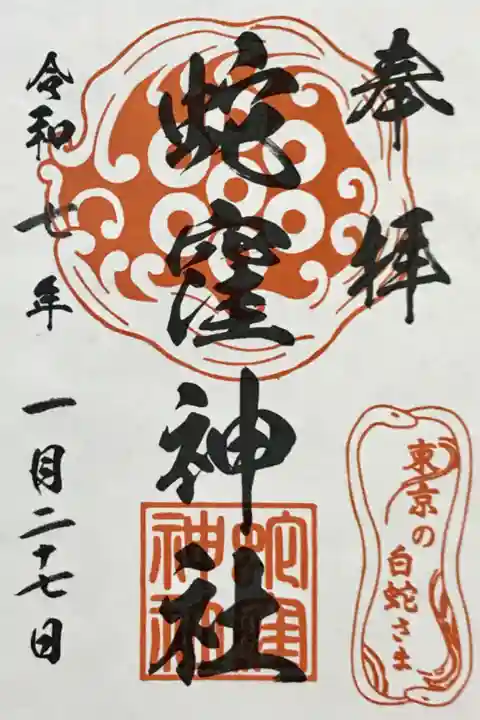 奉拝
蛇窪神社
令和七年 一月二十七日
東京の
白蛇さま
蛇窪
神社